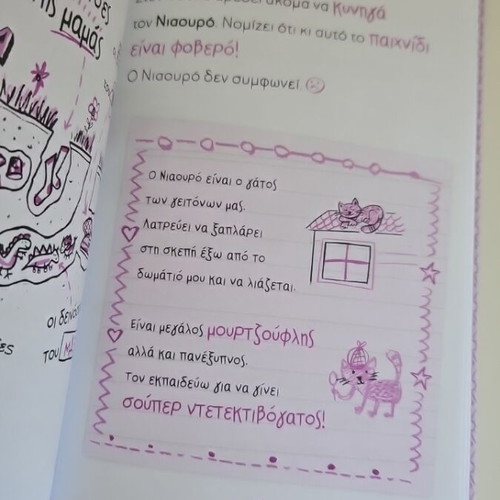 ακόμα να κυνηγά
τον Νιαουρό. Νομίζει ότι κι αυτό το παιχνίδι
είναι φοβερό!
Ο Νιαουρό δεν συμφωνεί.
μαμάς
Ο Νιαουρό είναι ο γάτος
των γειτόνων μας.
Λατρεύει να ξαπλάρει
στη σκεπή έξω από το
δωμάτιό μου και να λιάζεται.
Είναι μεγάλος μουρτζούφλης
αλλά και πανέξυπνος.
Τον εκπαιδεύω για να γίνει
σούπερ ντετεκτιβόγατος!